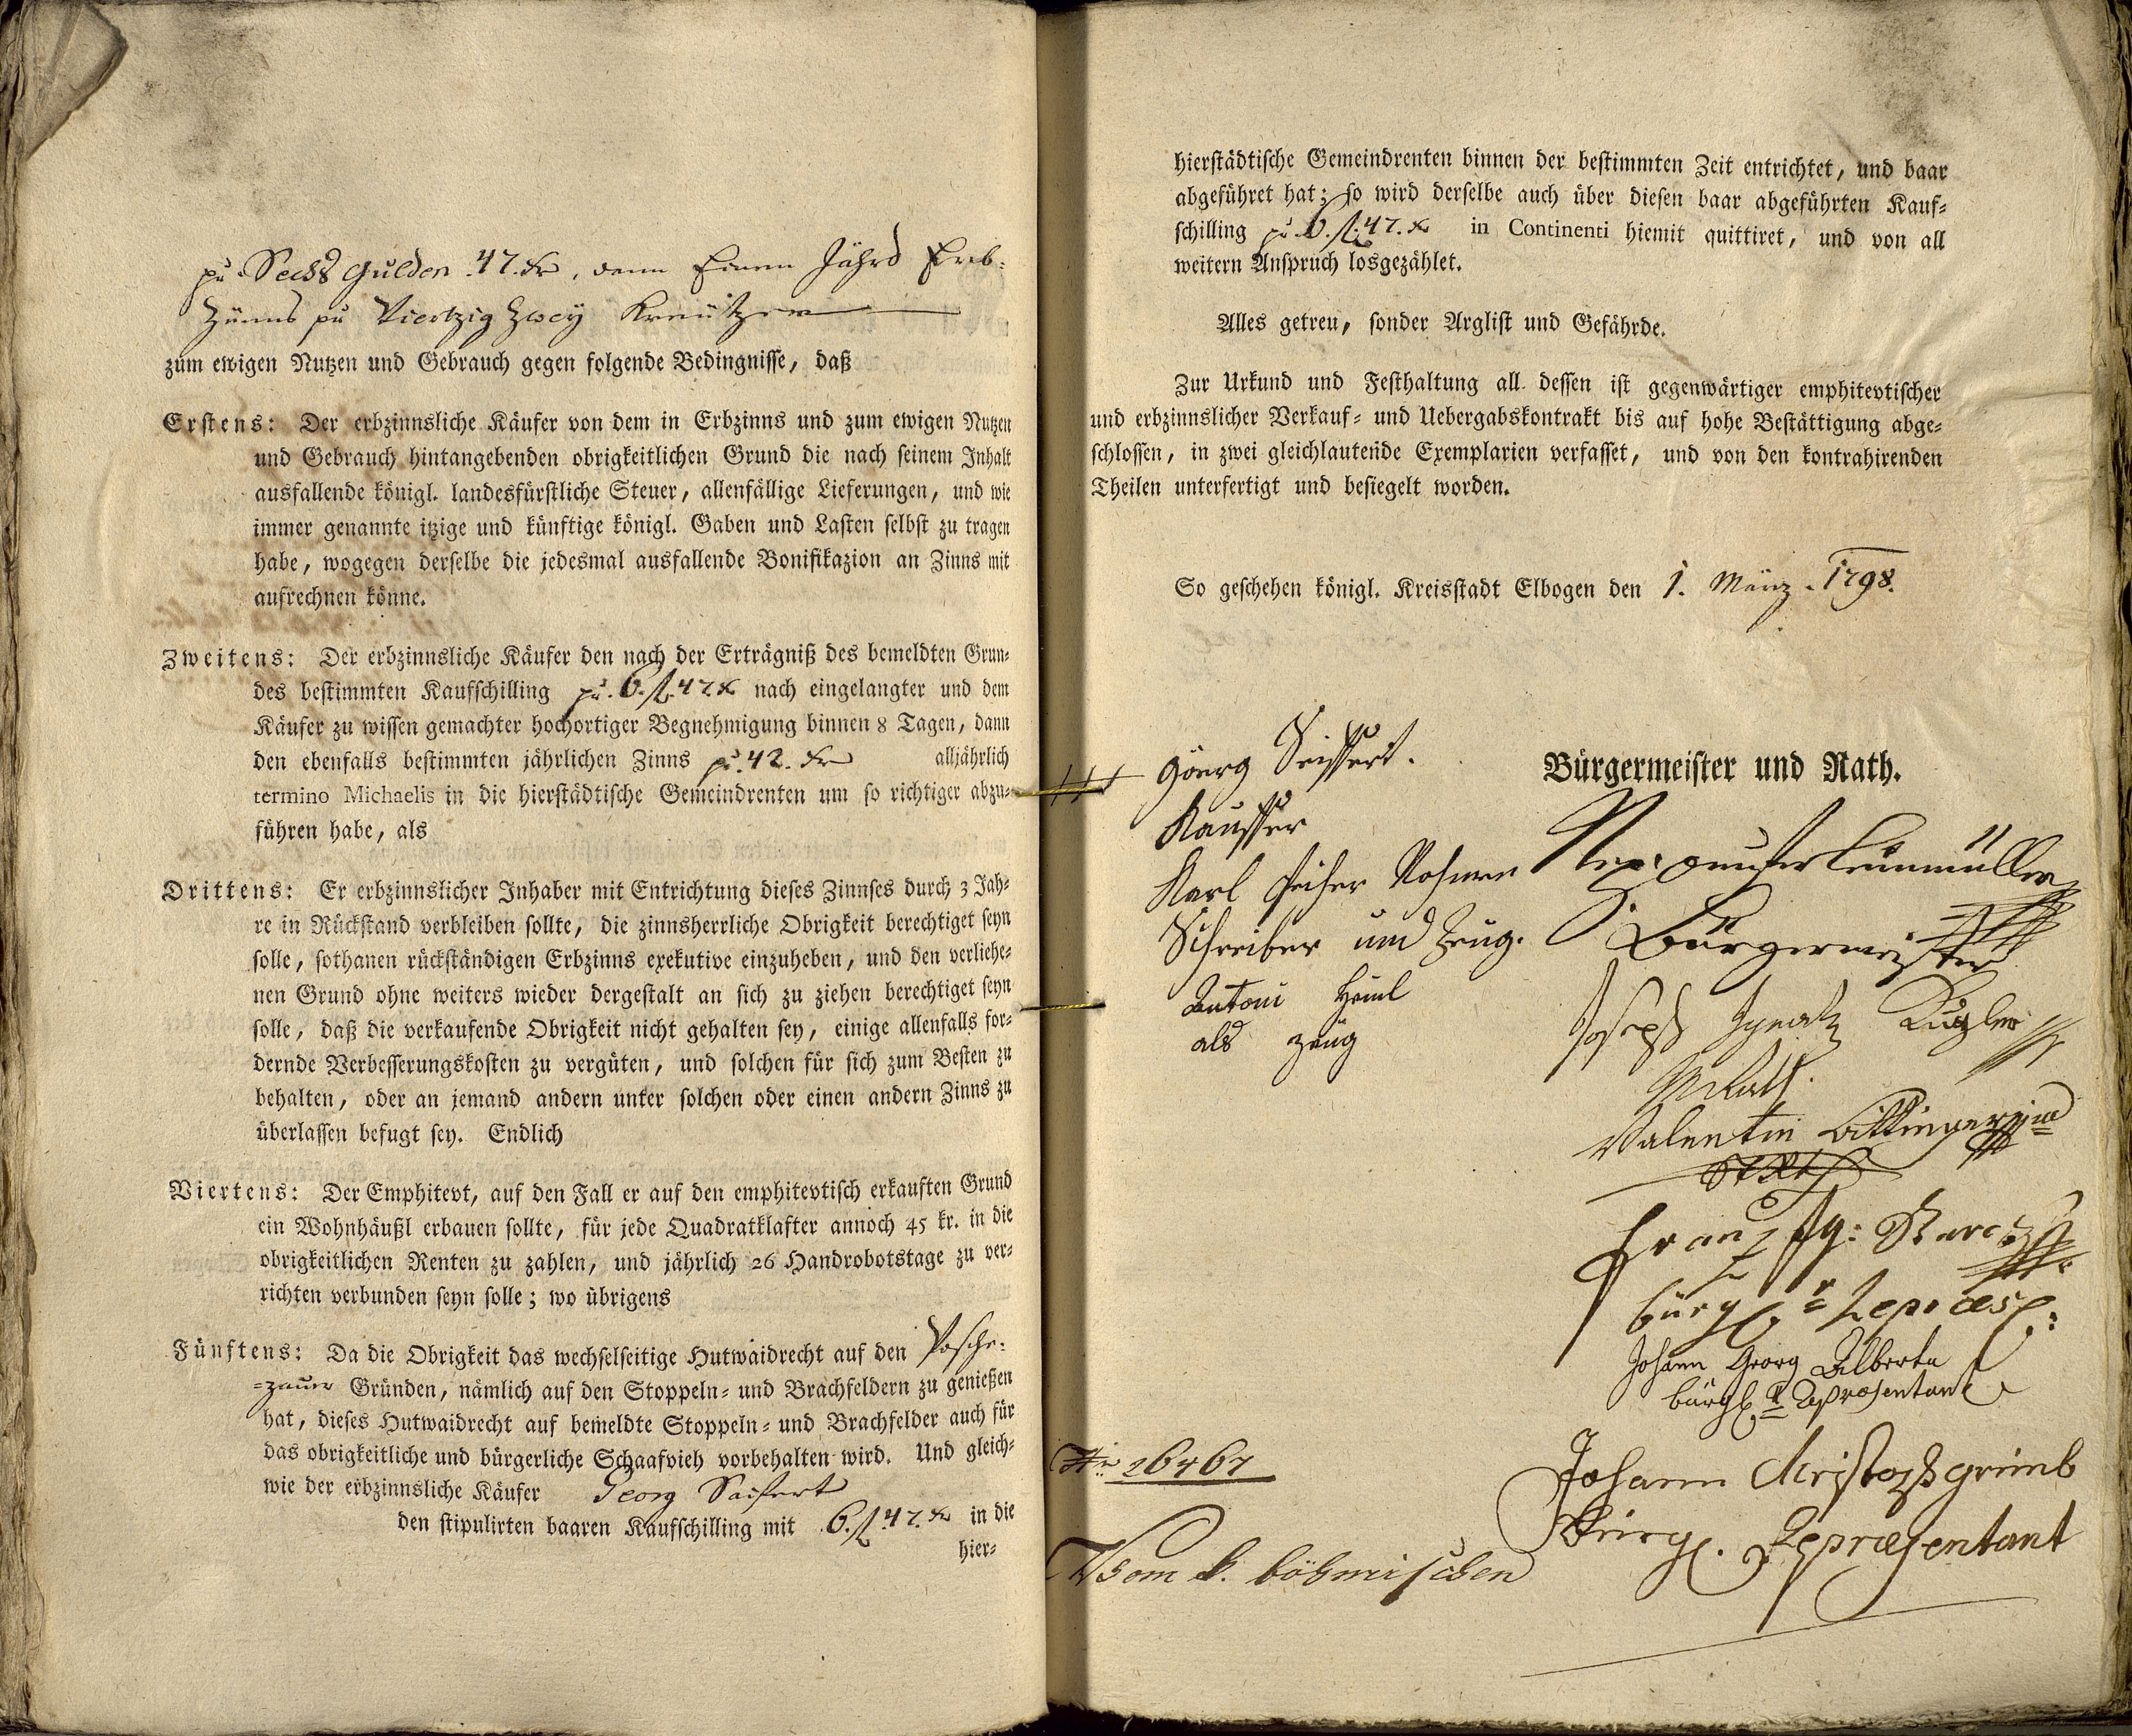 pr. Sechs Gulden 47. kr, denn Einem Jährl Erb-
Zünns pr Viertzig Zwey Kreützer
zum ewigen Nutzen und Gebrauch gegen folgende Bedingnisse, daß
Erstens: Der erbzinnsliche Käufer von dem in Erbzinns und zum ewigen Nutzen
und Gebrauch hintangebenden obrigkeitlichen Grund die nach seinem Inhalt
ausfallende königl. landesfürstliche Steuer, allenfällige Lieferungen, und wie
immer genannte itzige und künftige königl. Gaben und Lasten selbst zu tragen
habe, wogegen derselbe die jedesmal ausfallende Bonifikazion an Zinns mit
aufrechnen könne.
Zweitens: Der erbzinnsliche Käufer den nach der Erträgniß des bemeldten Grun-
des bestimmten Kaufschilling pr. 6. fl. 47 kr nach eingelangter und dem
Käufer zu wissen gemachter hochortiger Begnehmigung binnen 8 Tagen, dann
den ebenfalls bestimmten jährlichen Zinns pr. 42. kr alljährlich
termino Michaelis in die hierstädtische Gemeindrenten um so richtiger abzu-
führen habe, als
Drittens: Er erbzinnslicher Inhaber mit Entrichtung dieses Zinnses durch 3 Jah-
re in Rückstand verbleiben sollte, die zinnsherrliche Obrigkeit berechtiget seyn
solle, sothanen rückständigen Erbzinns exekutive einzuheben, und den verliehe-
nen Grund ohne weiters wieder dergestalt an sich zu ziehen berechtiget seyn
solle, daß die verkaufende Obrigkeit nicht gehalten sey, einige allenfalls for-
dernde Verbesserungskosten zu vergüten, und solchen für sich zum Besten zu
behalten, oder an jemand andern unter solchen oder einen andern Zinns zu
überlassen befugt sey. Endlich
Viertens: Der Emphitevt, auf den Fall er auf den emphitevtisch erkauften Grund
ein Wohnhäußl erbauen sollte, für jede Quadratklafter annoch 45 kr. in die
obrigkeitlichen Renten zu zahlen, und jährlich 26 Handrobotstage zu ver-
richten verbunden seyn solle; wo übrigens
Fünftens: Da die Obrigkeit das wechselseitige Hutwaidrecht auf den Posche-
-zauer Gründen, nämlich auf den Stoppeln- und Brachfeldern zu genießen
hat, dieses Hutwaidrecht auf bemeldte Stoppeln- und Brachfelder auch für
das obrigkeitliche und bürgerliche Schaafvieh vorbehalten wird. Und gleich-
wie der erbzinnsliche Käufer Georg Saifert
den stipulirten baaren Kaufschilling mit 6. fl. 47. kr in die
hier-
hierstädtische Gemeindrenten binnen der bestimmten Zeit entrichtet, und baar
abgeführet hat; so wird derselbe auch über diesen baar abgeführten Kauf-
schilling pr. 6. fl. 47. kr in Continenti hiemit quittiret, und von all
weitern Anspruch losgezählet.
Alles getreu, sonder Arglist und Gefährde.
Zur Urkund und Festhaltung all dessen ist gegenwärtiger emphitevtischer
und erbzinnslicher Verkauf- und Uebergabskontrakt bis auf hohe Bestättigung abge-
schlossen, in zwei gleichlautende Exemplarien verfasset, und von den kontrahirenden
Theilen unterfertigt und besiegelt worden.
So geschehen königl. Kreisstadt Elbogen den 1. März 1798.
+++ Göerg Seiffert.
Kauffer
Karl
Schreiber und Zeug.
Antoni Heinl
als zeug
Bürgermeister und Rath.
Bürgermeister
Joseph Ignatz Kugler
Rath.
Valentin
Franz
bürgl. r Repraes:
Johann Georg Alberta
bürgl. r Repraesentant
Johann Christoph
Bürgl. Repraesentant
Nr 26467
Vom k. böhmischen